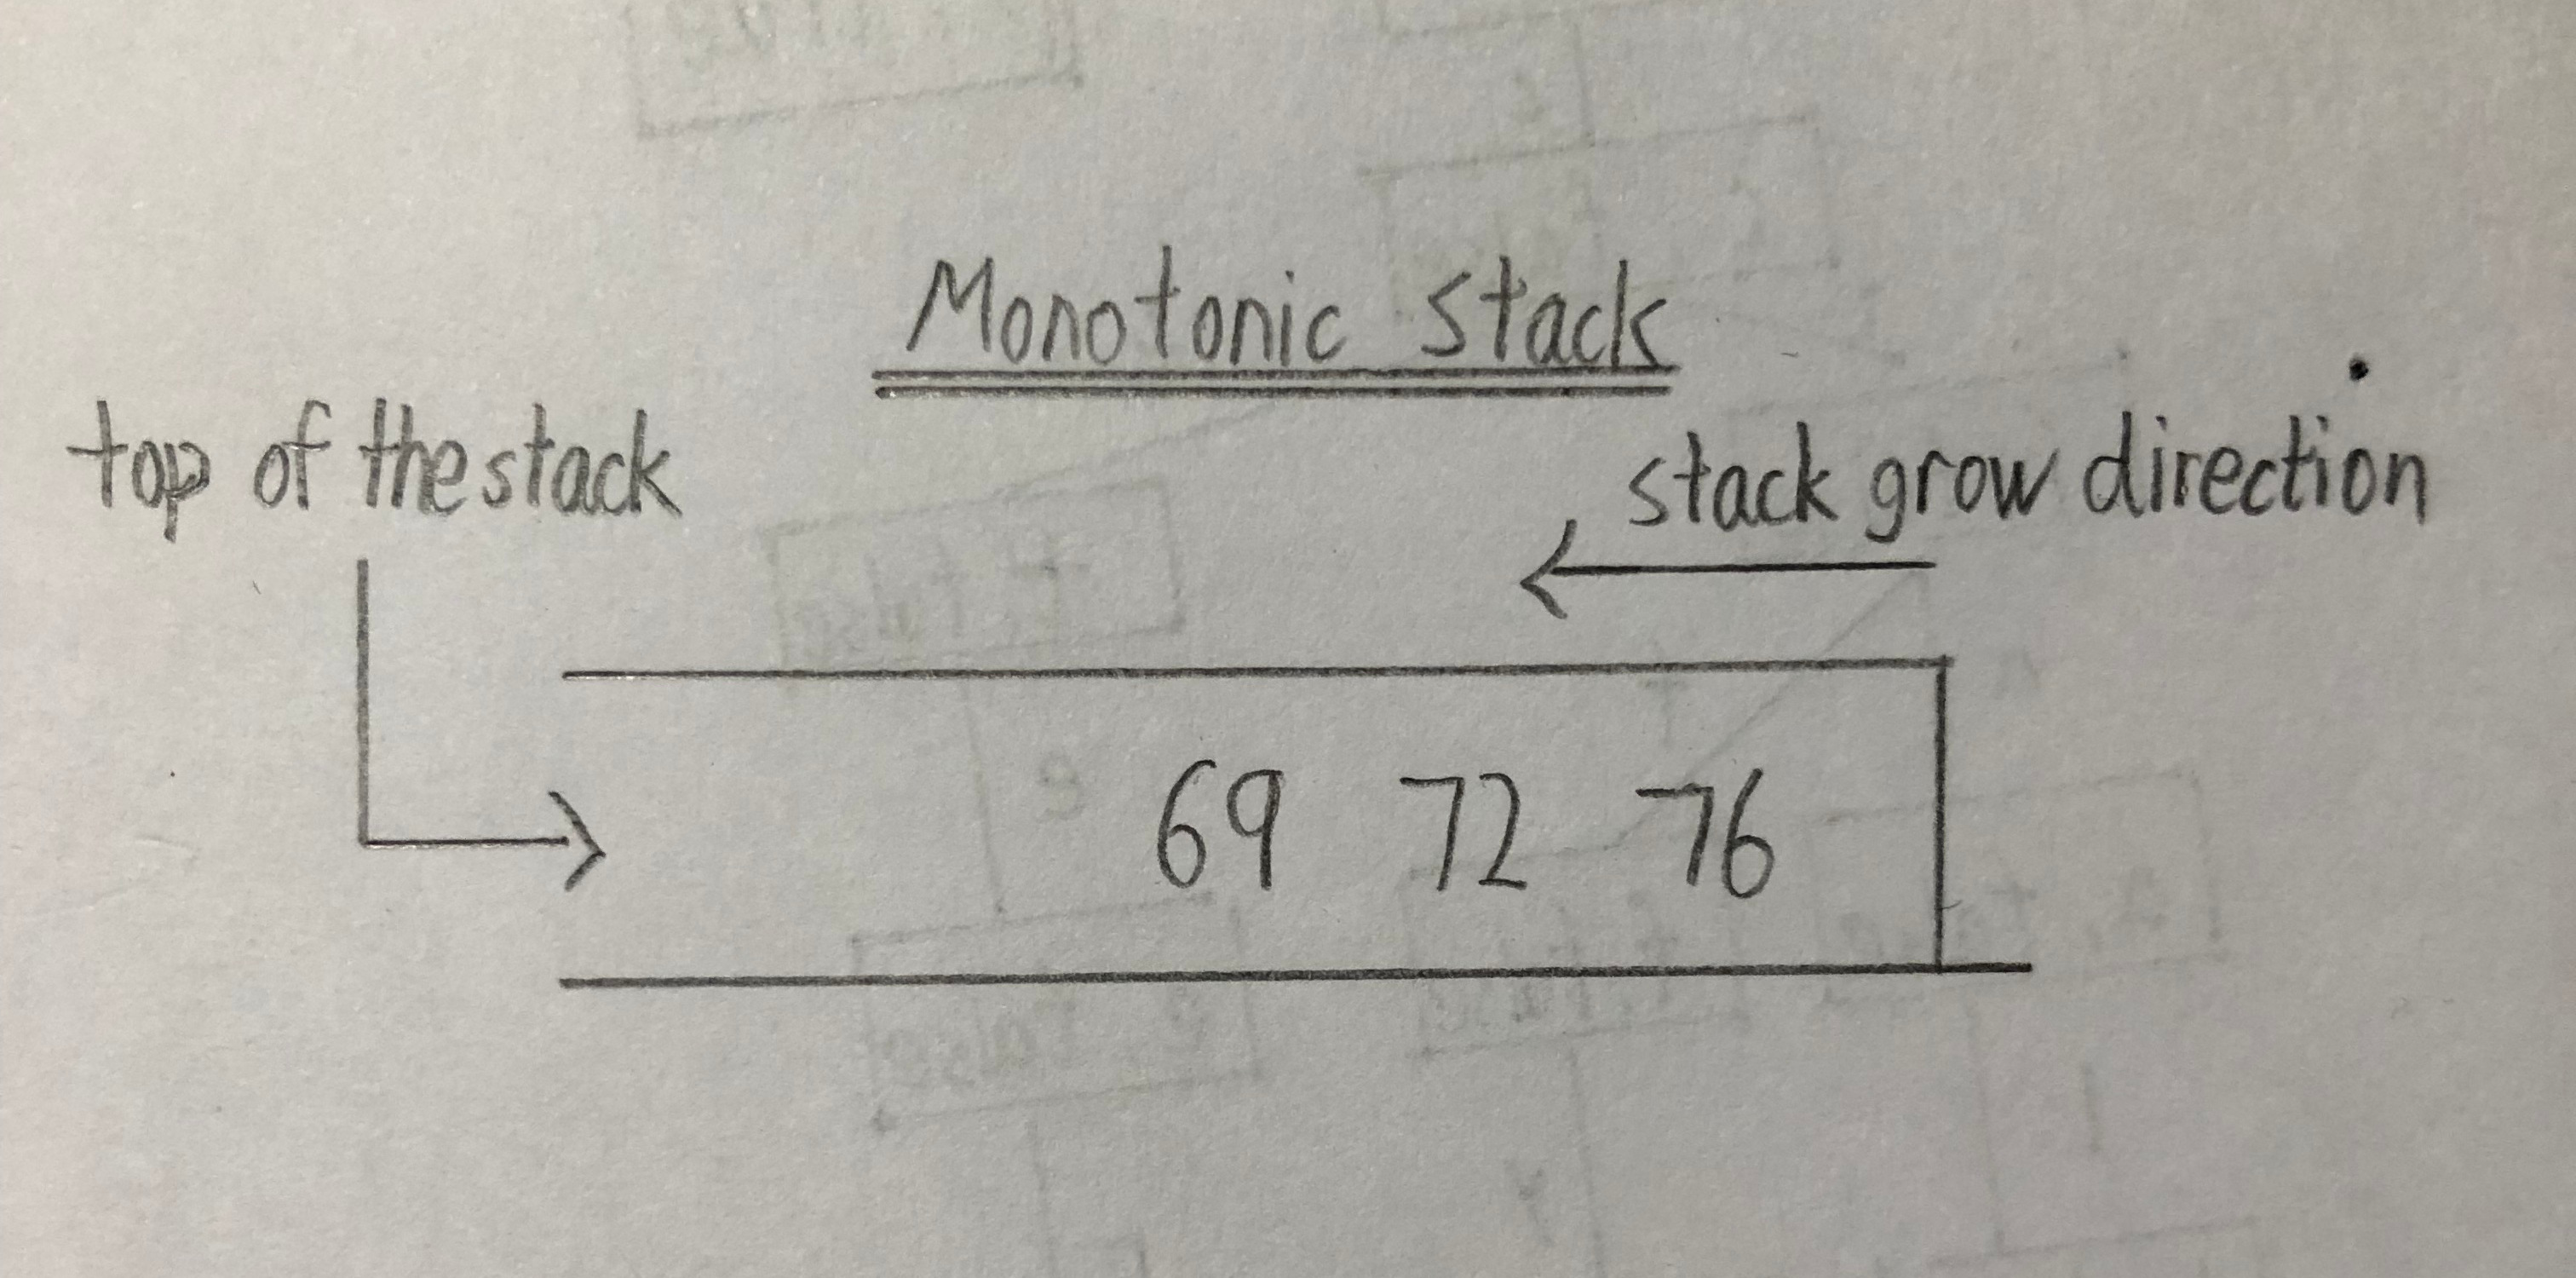 Monotonic Stack
top of the stack
stack grow direction
69 72 76